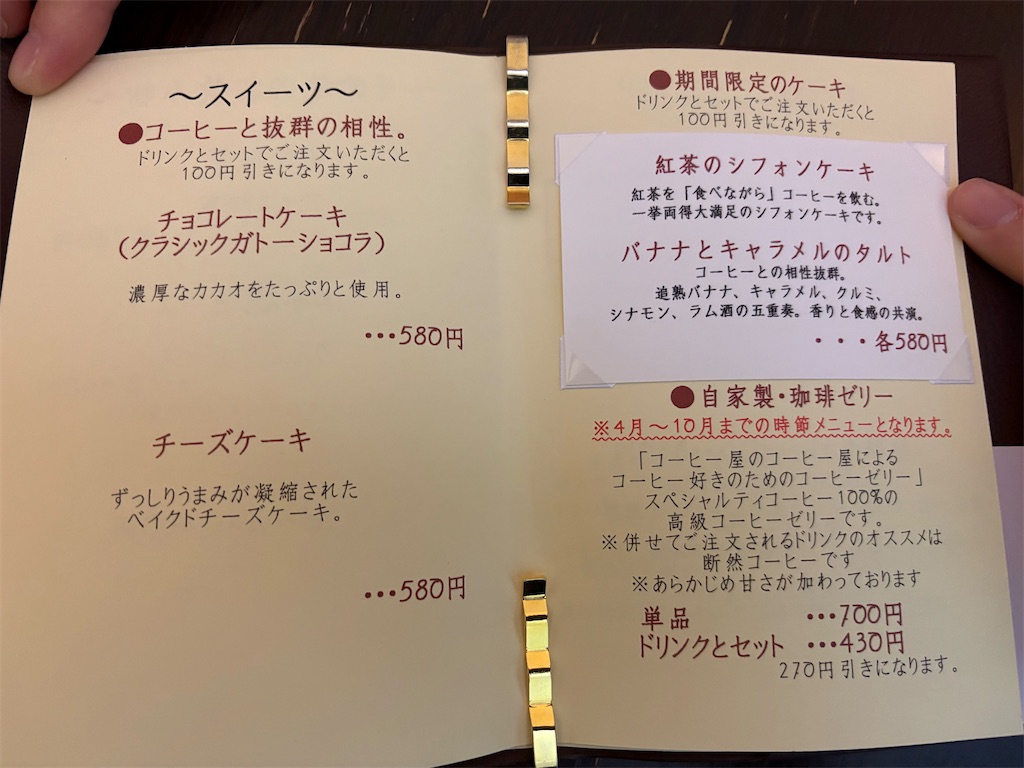 ～スイーツ～
●コーヒーと抜群の相性。
ドリンクとセットでご注文いただくと
100円引きになります。
チョコレートケーキ
(クラシックガトーショコラ)
濃厚なカカオをたっぷりと使用。
•••580円
チーズケーキ
ずっしりうまみが凝縮された
ベイクドチーズケーキ。
•••580円
●期間限定のケーキ
ドリンクとセットでご注文いただくと
100円引きになります。
紅茶のシフォンケーキ
紅茶を「食べながら」コーヒーを飲む。
一挙両得大満足のシフォンケーキです。
バナナとキャラメルのタルト
コーヒーとの相性抜群。
追熟バナナ、キャラメル、クルミ、
シナモン、ラム酒の五重奏。香りと食感の共演。
・・・各580円
●自家製・珈琲ゼリー
※4月～10月までの時節メニューとなります。
「コーヒー屋のコーヒー屋による
コーヒー好きのためのコーヒーゼリー」
スペシャルティコーヒー100%の
高級コーヒーゼリーです。
※併せてご注文されるドリンクのオススメは
断然コーヒーです
※あらかじめ甘さが加わっております
単品 •••700円
ドリンクとセット •••430円
270円引きになります。